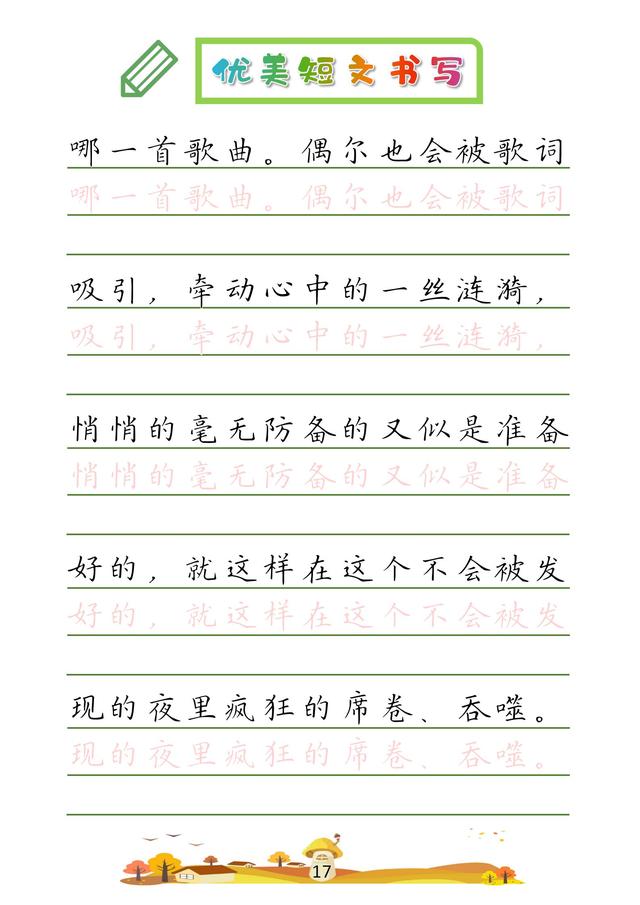 优美短文书写
哪一首歌曲。偶尔也会被歌词
哪一首歌曲。偶尔也会被歌词
吸引，牵动心中的一丝涟漪，
吸引，牵动心中的一丝涟漪，
悄悄的毫无防备的又似是准备
悄悄的毫无防备的又似是准备
好的，就这样在这个不会被发
好的，就这样在这个不会被发
现的夜里疯狂的席卷、吞噬。
现的夜里疯狂的席卷、吞噬。
17